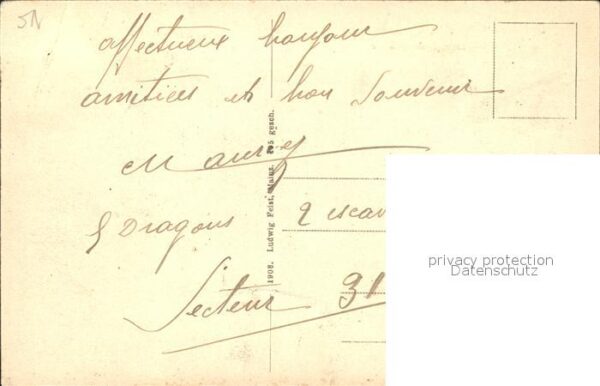 affectueux bonjour
amitiees et bon Souvenir
Dragons 2 escad
Secteur 31
1908. Ludwig Feist, Mainz. gesch.
privacy protection
Datenschutz